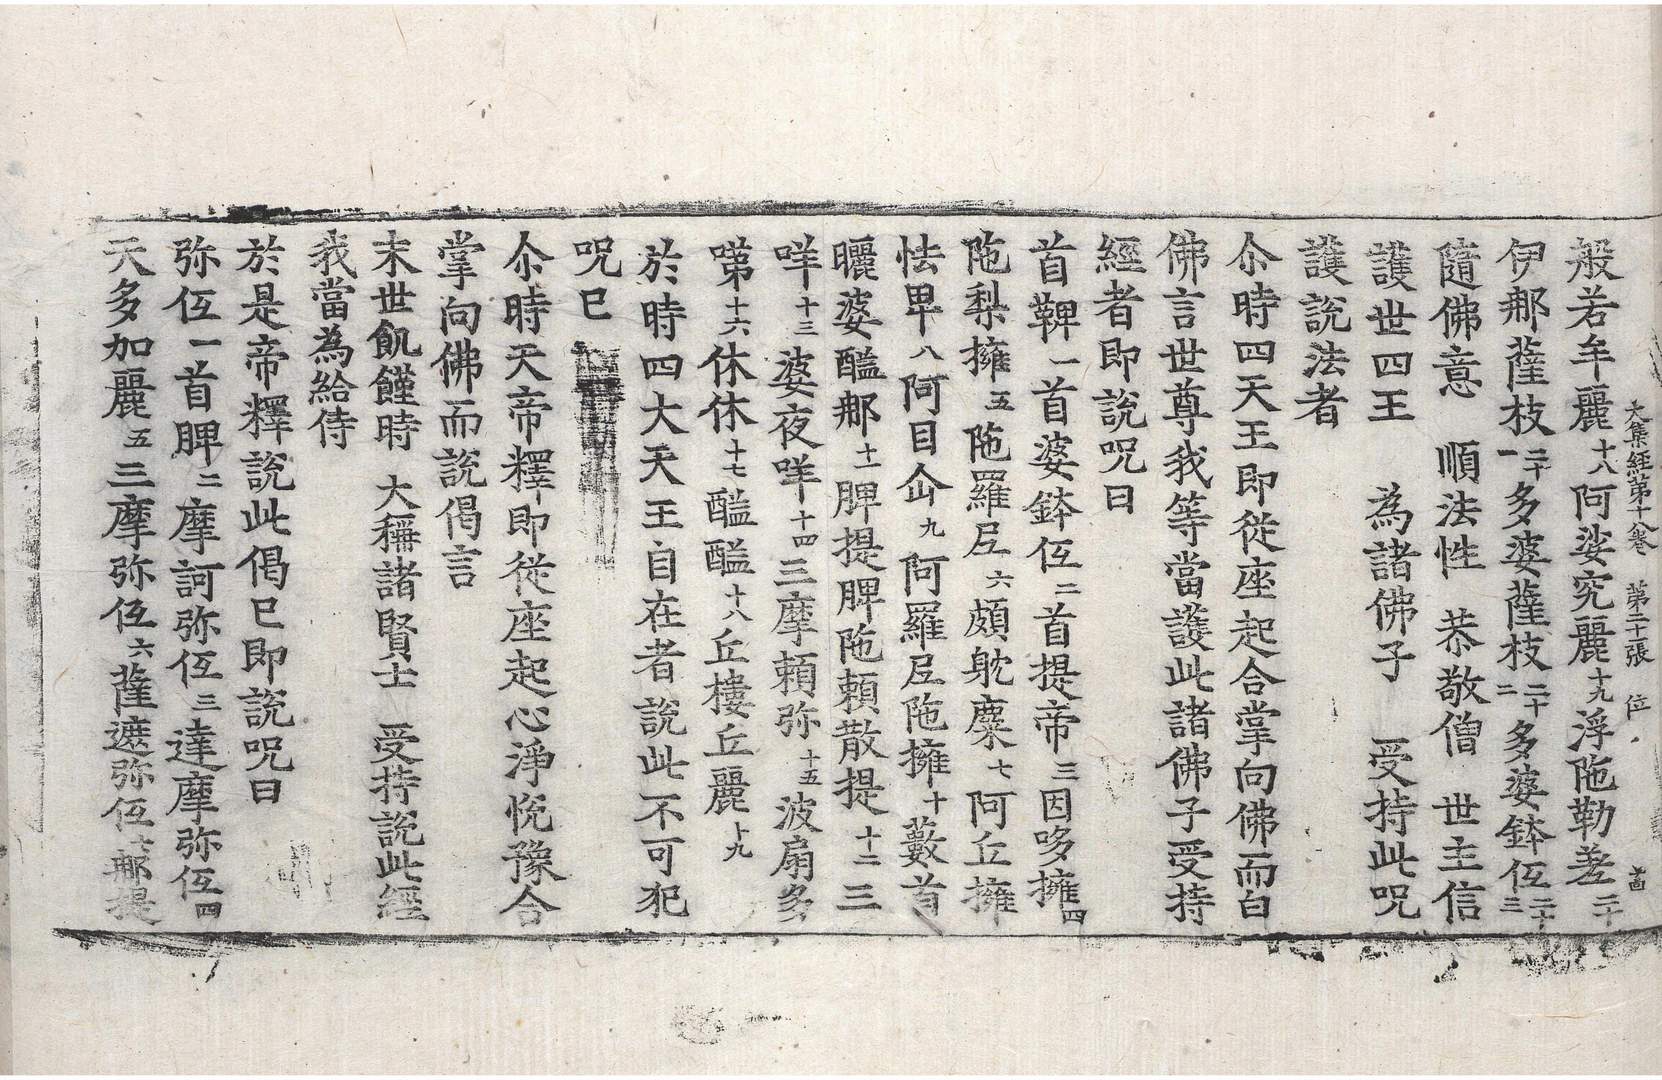 大集經第十八卷 第二十張 位
般若牟麗十八阿娑究麗十九浮陁勒差二十
伊那薩枝二十一多婆薩枝二十二多婆鉢伍二十三
隨佛意 順法性 恭敬僧 世主信
護世四王 為諸佛子 受持此呪
護說法者
尒時四天王即從座起合掌向佛而白
佛言世尊我等當護此諸佛子受持
經者即說呪曰
首鞞一首婆鉢伍二首提帝三因哆擁四
陁梨擁五陁羅𡰱六頗躭麋七阿丘擁
怯畀八阿目仚九阿羅𡰱陁擁十藪首
曬婆醯那十一脾提脾陁頼散提十二三
咩十三婆夜咩十四三摩頼弥十五波扇多
㖒十六休休十七醯醯十八丘樓丘麗十九
於時四大天王自在者說此不可犯
呪已
尒時天帝釋即從座起心淨恱豫合
掌向佛而說偈言
末世飢饉時 大稱諸賢士 受持說此經
我當為給侍
於是帝釋說此偈已即說呪曰
弥伍一首脾二摩訶弥伍三達摩弥伍四
天多加麗五三摩弥伍六薩遮弥伍七那提